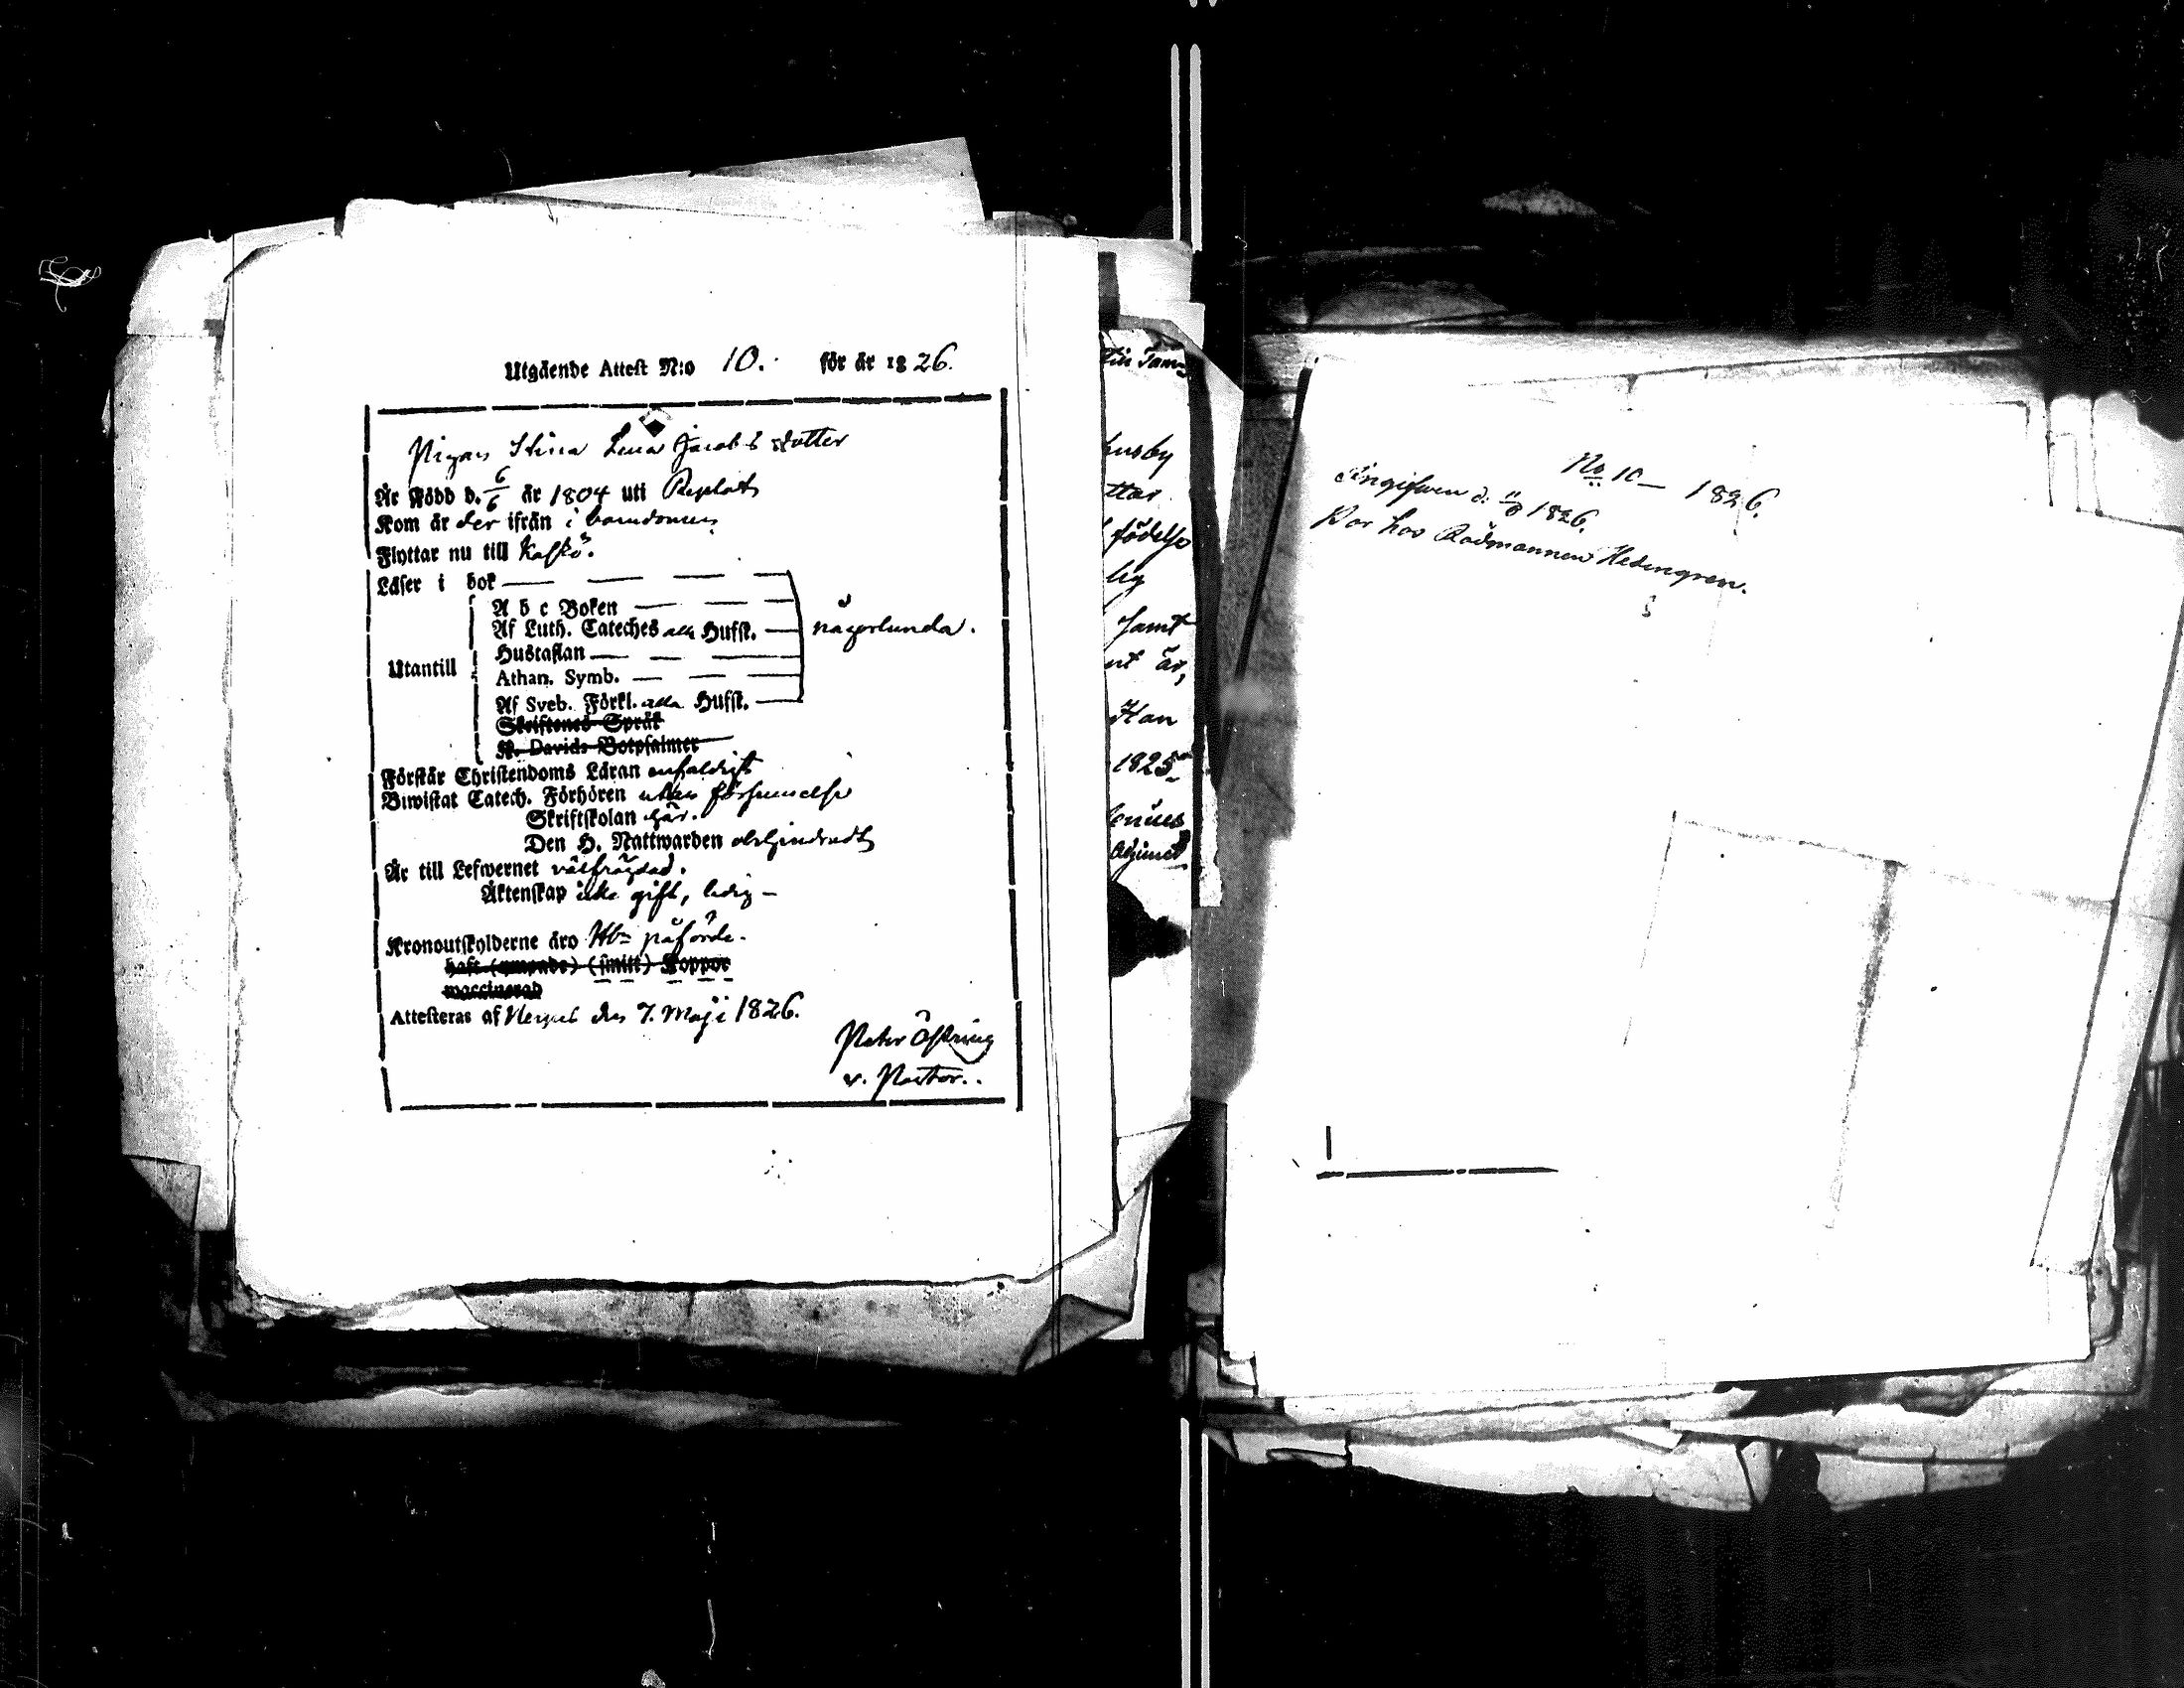 Utgående Attest N:o 10. för år 1826.
Pigan Stina Lena Jacobs dotter
Är Född d. 6/6 år 1804 uti Replot
Kom år der ifrån i barndomen
Flyttar nu till Kaskö.
Läser i bok
A b c Boken
Af Luth. Cateches alla Hufst. någorlunda.
Hustaflan
Utantill
Athan. Symb.
Af Sveb. Förkl. alla Hufst.
Skriftenes Språk
K. Davids Botpsalmer
Förstår Christendoms Läran enfaldigt
Biwistat Catech. Förhören utan försummelse
Skriftskolan här.
Den H. Nattwarden obehindradt
Är till Lefwernet välfrägdad.
Äktenskap icke gift, ledig —
Kronoutskylderne äro påförde.
haft (ympade) (smitt) Koppor
waccinerad
Attesteras af den 7. Maji 1826.
Peter
v. Pastor..
Tam
husby
ttar
födelse
lig
samt
nt är,
Han
1825
enius
Adjunct
No 10 — 1826.
Ingifven d. 1826.
Bor hos Rådmannen Hedengren.